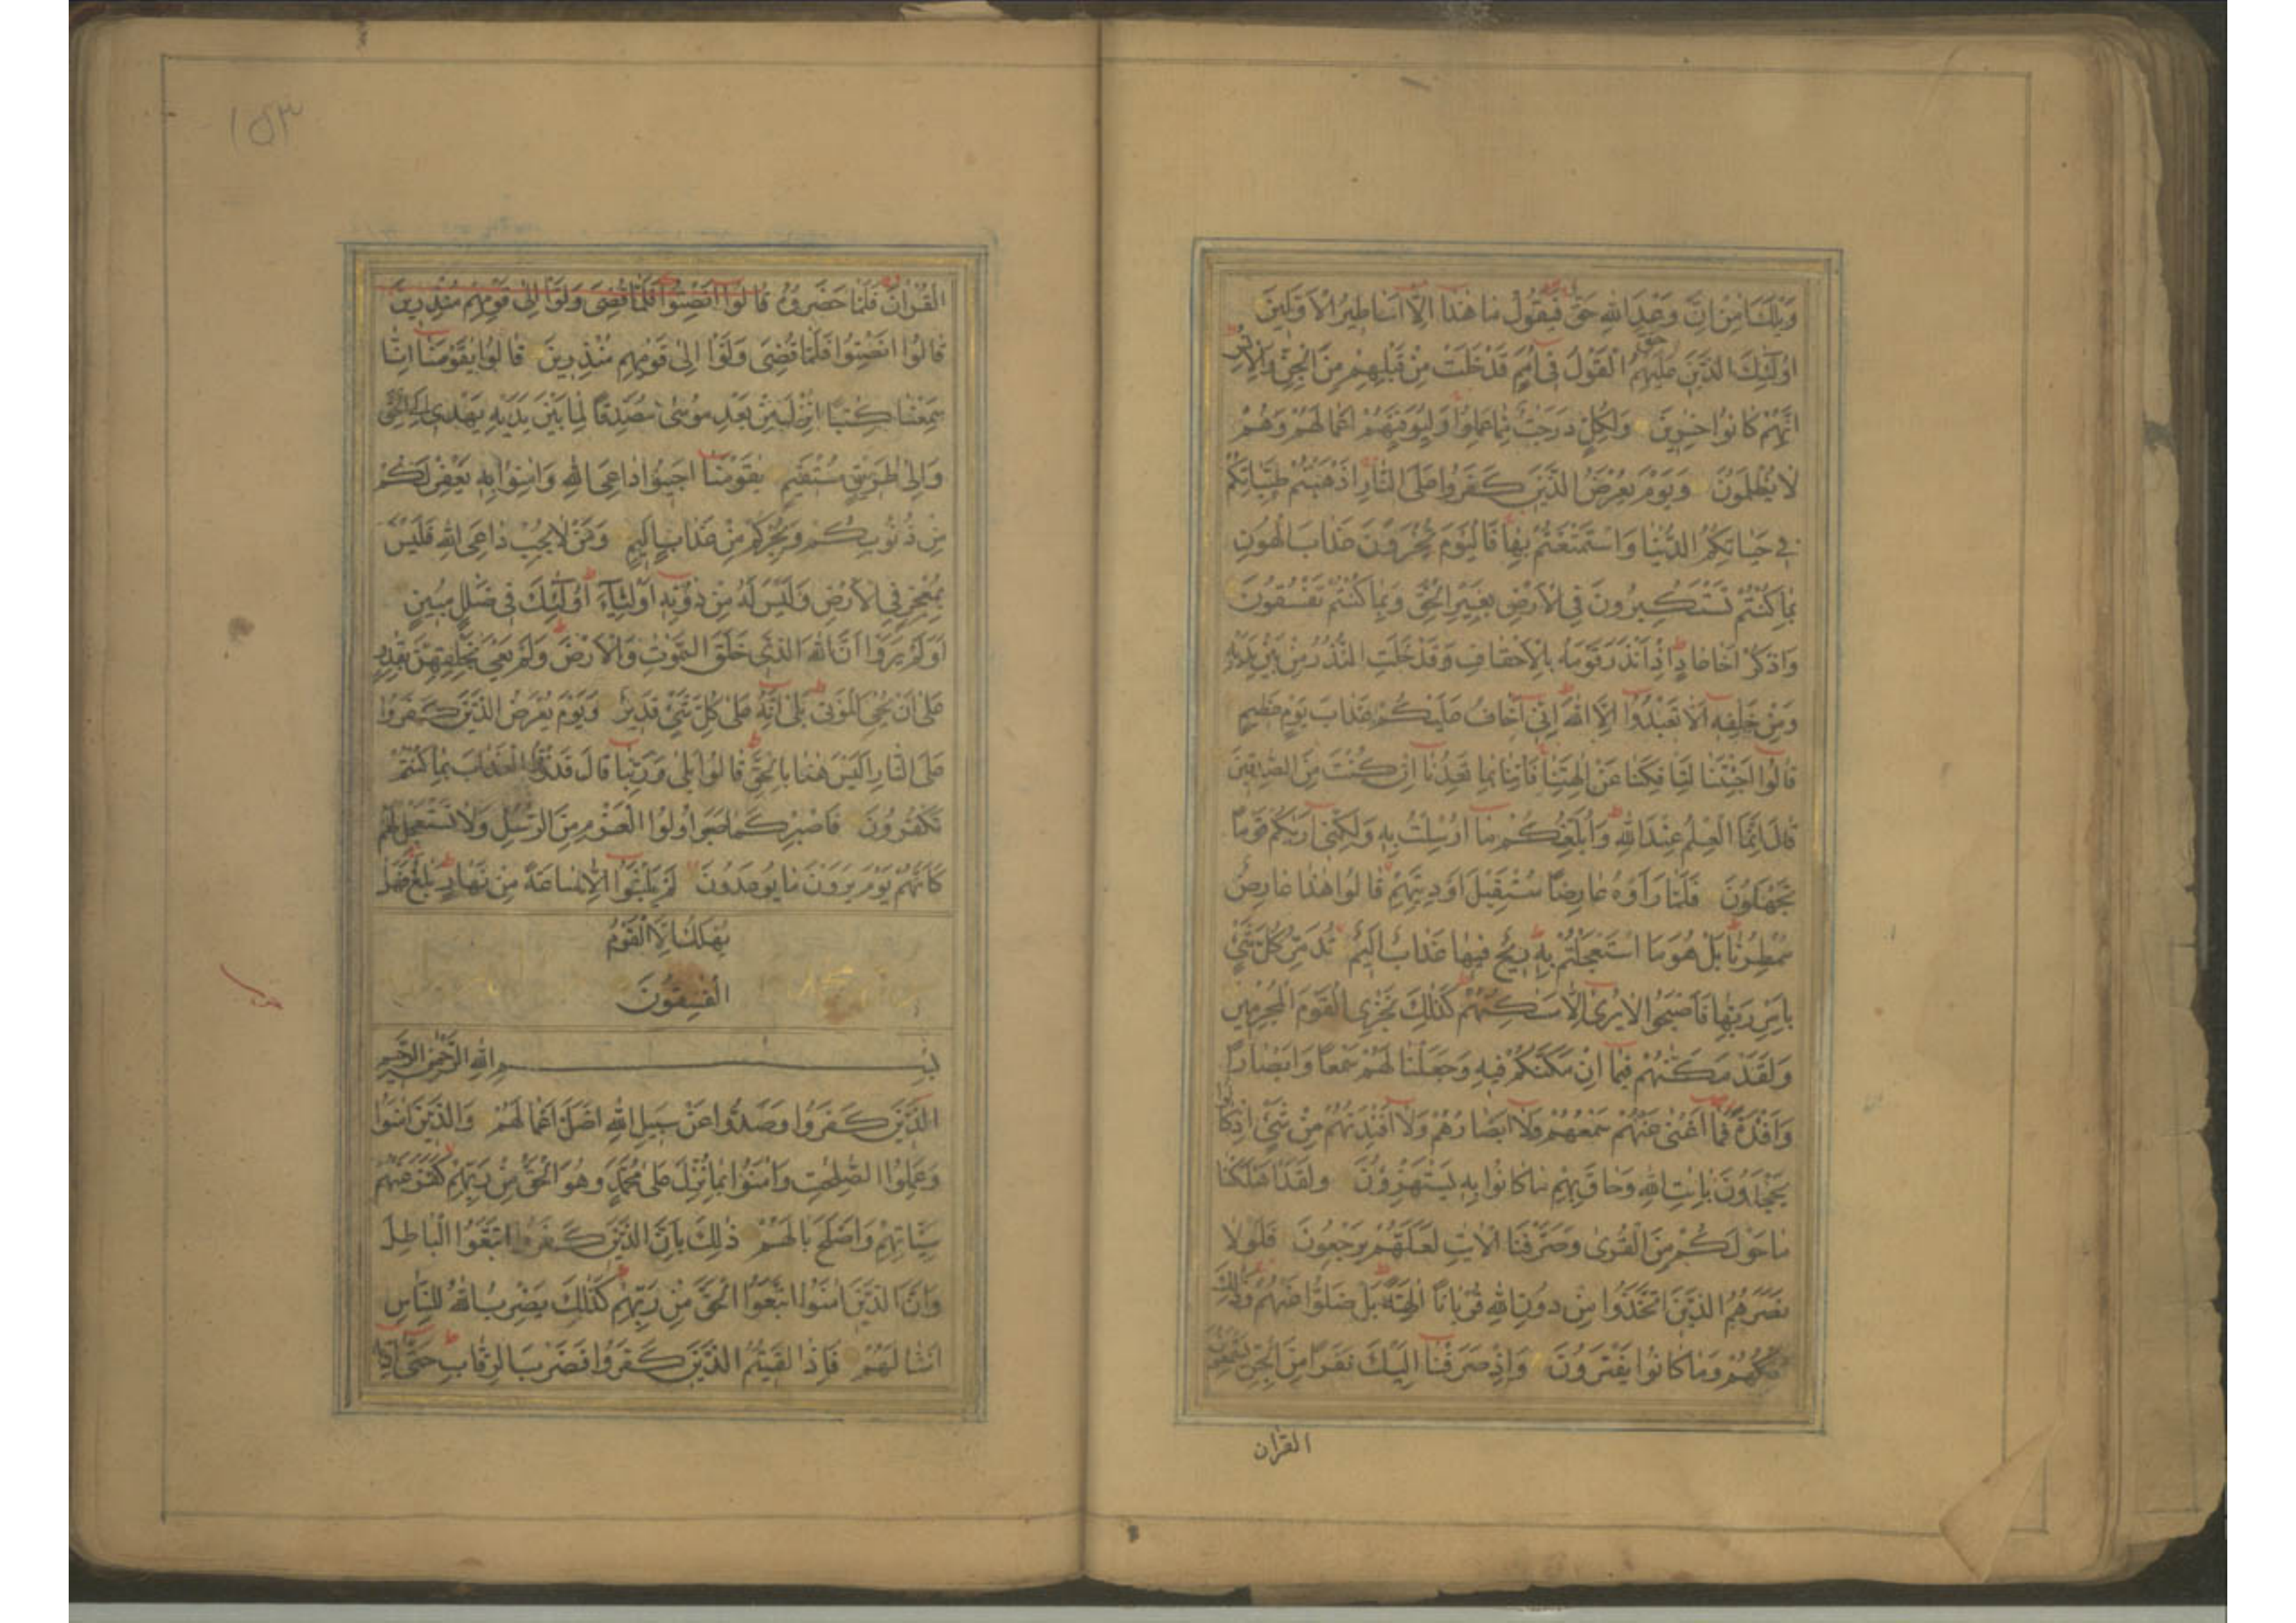 وَيْلَكَ اٰمِنْ اِنَّ وَعْدَ اللّٰهِ حَقٌّ فَيَقُوْلُ مَا هٰذَا اِلَّا اَسَاطِيْرُ الْاَوَّلِيْنَ
اُولٰٓئِكَ الَّذِيْنَ حَقَّ عَلَيْهِمُ الْقَوْلُ فِىْ اُمَمٍ قَدْ خَلَتْ مِنْ قَبْلِهِمْ مِنَ الْجِنِّ وَالْاِنْسِ
اِنَّهُمْ كَانُوْا خٰسِرِيْنَ وَلِكُلٍّ دَرَجٰتٌ مِمَّا عَمِلُوْا وَلِيُوَفِّيَهُمْ اَعْمَالَهُمْ وَهُمْ
لَا يُظْلَمُوْنَ وَيَوْمَ يُعْرَضُ الَّذِيْنَ كَفَرُوْا عَلَى النَّارِ اَذْهَبْتُمْ طَيِّبَاتِكُمْ
فِىْ حَيَاتِكُمُ الدُّنْيَا وَاسْتَمْتَعْتُمْ بِهَا فَالْيَوْمَ تُجْزَوْنَ عَذَابَ الْهُوْنِ
بِمَا كُنْتُمْ تَسْتَكْبِرُوْنَ فِى الْاَرْضِ بِغَيْرِ الْحَقِّ وَبِمَا كُنْتُمْ تَفْسُقُوْنَ
وَاذْكُرْ اَخَا عَادٍ اِذْ اَنْذَرَ قَوْمَهُ بِالْاَحْقَافِ وَقَدْ خَلَتِ النُّذُرُ مِنْ بَيْنِ يَدَيْهِ
وَمِنْ خَلْفِهِ اَلَّا تَعْبُدُوْا اِلَّا اللّٰهَ اِنِّىْ اَخَافُ عَلَيْكُمْ عَذَابَ يَوْمٍ عَظِيْمٍ
قَالُوْا اَجِئْتَنَا لِتَاْفِكَنَا عَنْ اٰلِهَتِنَا فَاْتِنَا بِمَا تَعِدُنَا اِنْ كُنْتَ مِنَ الصّٰدِقِيْنَ
قَالَ اِنَّمَا الْعِلْمُ عِنْدَ اللّٰهِ وَاُبَلِّغُكُمْ مَا اُرْسِلْتُ بِهِ وَلٰكِنِّىْ اَرٰىكُمْ قَوْمًا
تَجْهَلُوْنَ فَلَمَّا رَاَوْهُ عَارِضًا مُسْتَقْبِلَ اَوْدِيَتِهِمْ قَالُوْا هٰذَا عَارِضٌ
مُمْطِرُنَا بَلْ هُوَ مَا اسْتَعْجَلْتُمْ بِهِ رِيْحٌ فِيْهَا عَذَابٌ اَلِيْمٌ تُدَمِّرُ كُلَّ شَىْءٍ
بِاَمْرِ رَبِّهَا فَاَصْبَحُوْا لَا يُرٰى اِلَّا مَسٰكِنُهُمْ كَذٰلِكَ نَجْزِى الْقَوْمَ الْمُجْرِمِيْنَ
وَلَقَدْ مَكَّنّٰهُمْ فِيْمَا اِنْ مَكَّنّٰكُمْ فِيْهِ وَجَعَلْنَا لَهُمْ سَمْعًا وَاَبْصَارًا
وَاَفْئِدَةً فَمَا اَغْنٰى عَنْهُمْ سَمْعُهُمْ وَلَا اَبْصَارُهُمْ وَلَا اَفْئِدَتُهُمْ مِنْ شَىْءٍ اِذْ كَانُوْا
يَجْحَدُوْنَ بِاٰيٰتِ اللّٰهِ وَحَاقَ بِهِمْ مَا كَانُوْا بِهِ يَسْتَهْزِؤُنَ وَلَقَدْ اَهْلَكْنَا
مَا حَوْلَكُمْ مِنَ الْقُرٰى وَصَرَّفْنَا الْاٰيٰتِ لَعَلَّهُمْ يَرْجِعُوْنَ فَلَوْلَا
نَصَرَهُمُ الَّذِيْنَ اتَّخَذُوْا مِنْ دُوْنِ اللّٰهِ قُرْبَانًا اٰلِهَةً بَلْ ضَلُّوْا عَنْهُمْ وَذٰلِكَ
اِفْكُهُمْ وَمَا كَانُوْا يَفْتَرُوْنَ وَاِذْ صَرَفْنَا اِلَيْكَ نَفَرًا مِنَ الْجِنِّ يَسْتَمِعُوْنَ
القرآن
١٥٣
الْقُرْاٰنَ فَلَمَّا حَضَرُوْهُ قَالُوْا اَنْصِتُوْا فَلَمَّا قُضِىَ وَلَّوْا اِلٰى قَوْمِهِمْ مُنْذِرِيْنَ
قَالُوْا اَنْصِتُوْا فَلَمَّا قُضِىَ وَلَّوْا اِلٰى قَوْمِهِمْ مُنْذِرِيْنَ قَالُوْا يٰقَوْمَنَا اِنَّا
سَمِعْنَا كِتٰبًا اُنْزِلَ مِنْ بَعْدِ مُوْسٰى مُصَدِّقًا لِمَا بَيْنَ يَدَيْهِ يَهْدِىْ اِلَى الْحَقِّ
وَاِلٰى طَرِيْقٍ مُسْتَقِيْمٍ يٰقَوْمَنَا اَجِيْبُوْا دَاعِىَ اللّٰهِ وَاٰمِنُوْا بِهِ يَغْفِرْ لَكُمْ
مِنْ ذُنُوْبِكُمْ وَيُجِرْكُمْ مِنْ عَذَابٍ اَلِيْمٍ وَمَنْ لَا يُجِبْ دَاعِىَ اللّٰهِ فَلَيْسَ
بِمُعْجِزٍ فِى الْاَرْضِ وَلَيْسَ لَهُ مِنْ دُوْنِهِ اَوْلِيَاءُ اُولٰٓئِكَ فِىْ ضَلٰلٍ مُبِيْنٍ
اَوَلَمْ يَرَوْا اَنَّ اللّٰهَ الَّذِىْ خَلَقَ السَّمٰوٰتِ وَالْاَرْضَ وَلَمْ يَعْىَ بِخَلْقِهِنَّ بِقٰدِرٍ
عَلٰى اَنْ يُحْيِىَ الْمَوْتٰى بَلٰى اِنَّهُ عَلٰى كُلِّ شَىْءٍ قَدِيْرٌ وَيَوْمَ يُعْرَضُ الَّذِيْنَ كَفَرُوْا
عَلَى النَّارِ اَلَيْسَ هٰذَا بِالْحَقِّ قَالُوْا بَلٰى وَرَبِّنَا قَالَ فَذُوْقُوا الْعَذَابَ بِمَا كُنْتُمْ
تَكْفُرُوْنَ فَاصْبِرْ كَمَا صَبَرَ اُولُوا الْعَزْمِ مِنَ الرُّسُلِ وَلَا تَسْتَعْجِلْ لَهُمْ
كَاَنَّهُمْ يَوْمَ يَرَوْنَ مَا يُوْعَدُوْنَ لَمْ يَلْبَثُوْا اِلَّا سَاعَةً مِنْ نَهَارٍ بَلٰغٌ فَهَلْ
يُهْلَكُ اِلَّا الْقَوْمُ
الْفٰسِقُوْنَ
بِسْمِ اللّٰهِ الرَّحْمٰنِ الرَّحِيْمِ
اَلَّذِيْنَ كَفَرُوْا وَصَدُّوْا عَنْ سَبِيْلِ اللّٰهِ اَضَلَّ اَعْمَالَهُمْ وَالَّذِيْنَ اٰمَنُوْا
وَعَمِلُوا الصّٰلِحٰتِ وَاٰمَنُوْا بِمَا نُزِّلَ عَلٰى مُحَمَّدٍ وَهُوَ الْحَقُّ مِنْ رَبِّهِمْ كَفَّرَ عَنْهُمْ
سَيِّاٰتِهِمْ وَاَصْلَحَ بَالَهُمْ ذٰلِكَ بِاَنَّ الَّذِيْنَ كَفَرُوا اتَّبَعُوا الْبَاطِلَ
وَاَنَّ الَّذِيْنَ اٰمَنُوا اتَّبَعُوا الْحَقَّ مِنْ رَبِّهِمْ كَذٰلِكَ يَضْرِبُ اللّٰهُ لِلنَّاسِ
اَمْثَالَهُمْ فَاِذَا لَقِيْتُمُ الَّذِيْنَ كَفَرُوْا فَضَرْبَ الرِّقَابِ حَتّٰى اِذَا